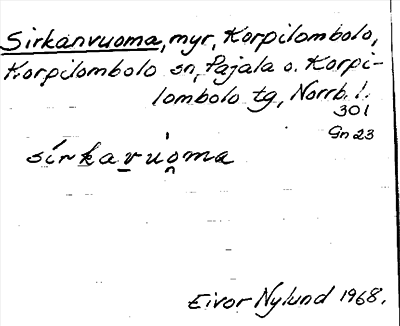 Sirkanvuoma, myr, Korpilombolo,
Korpilombolo sn, Pajala o. Korpi-
lombolo tg, Norrb. l.
301
Gn 23
sírkavúo̯ma
Eivor Nylund 1968.